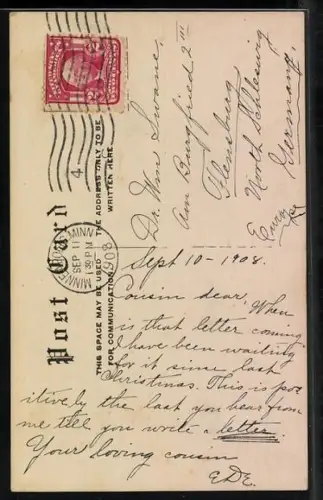 Post Card
THIS SPACE MAY BE USED
FOR COMMUNICATION.
THE ADDRESS ONLY TO BE
WRITTEN HERE
MINN
SEP 11
1 30 PM
1908
4
Am Burgfried 2 III
Flensburg
North Schleswig
Germany.
Sept 10 - 1908.
Cousin dear, When
is that letter coming
I have been waiting
for it since last
Christmas. This is pos
itively the last you hear from
me till you write a letter.
Your loving cousin
EDE.